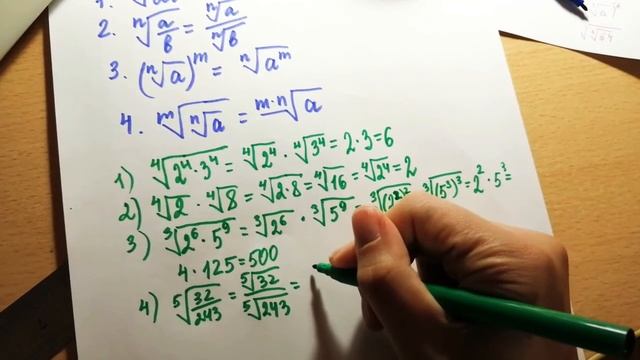 2. ⁿ√(a/b) = ⁿ√a / ⁿ√b
3. (ⁿ√a)ᵐ = ⁿ√aᵐ
4. ᵐ√(ⁿ√a) = ᵐ·ⁿ√a
1) ⁴√(2⁴·3⁴) = ⁴√2⁴ · ⁴√3⁴ = 2·3 = 6
2) ⁴√2 · ⁴√8 = ⁴√(2·8) = ⁴√16 = ⁴√2⁴ = 2
3) ³√(2⁶·5⁹) = ³√2⁶ · ³√5⁹ = ³√(2²)³ · ³√(5³)³ = 2²·5³ =
4·125 = 500
4) ⁵√(32/243) = ⁵√32 / ⁵√243 =